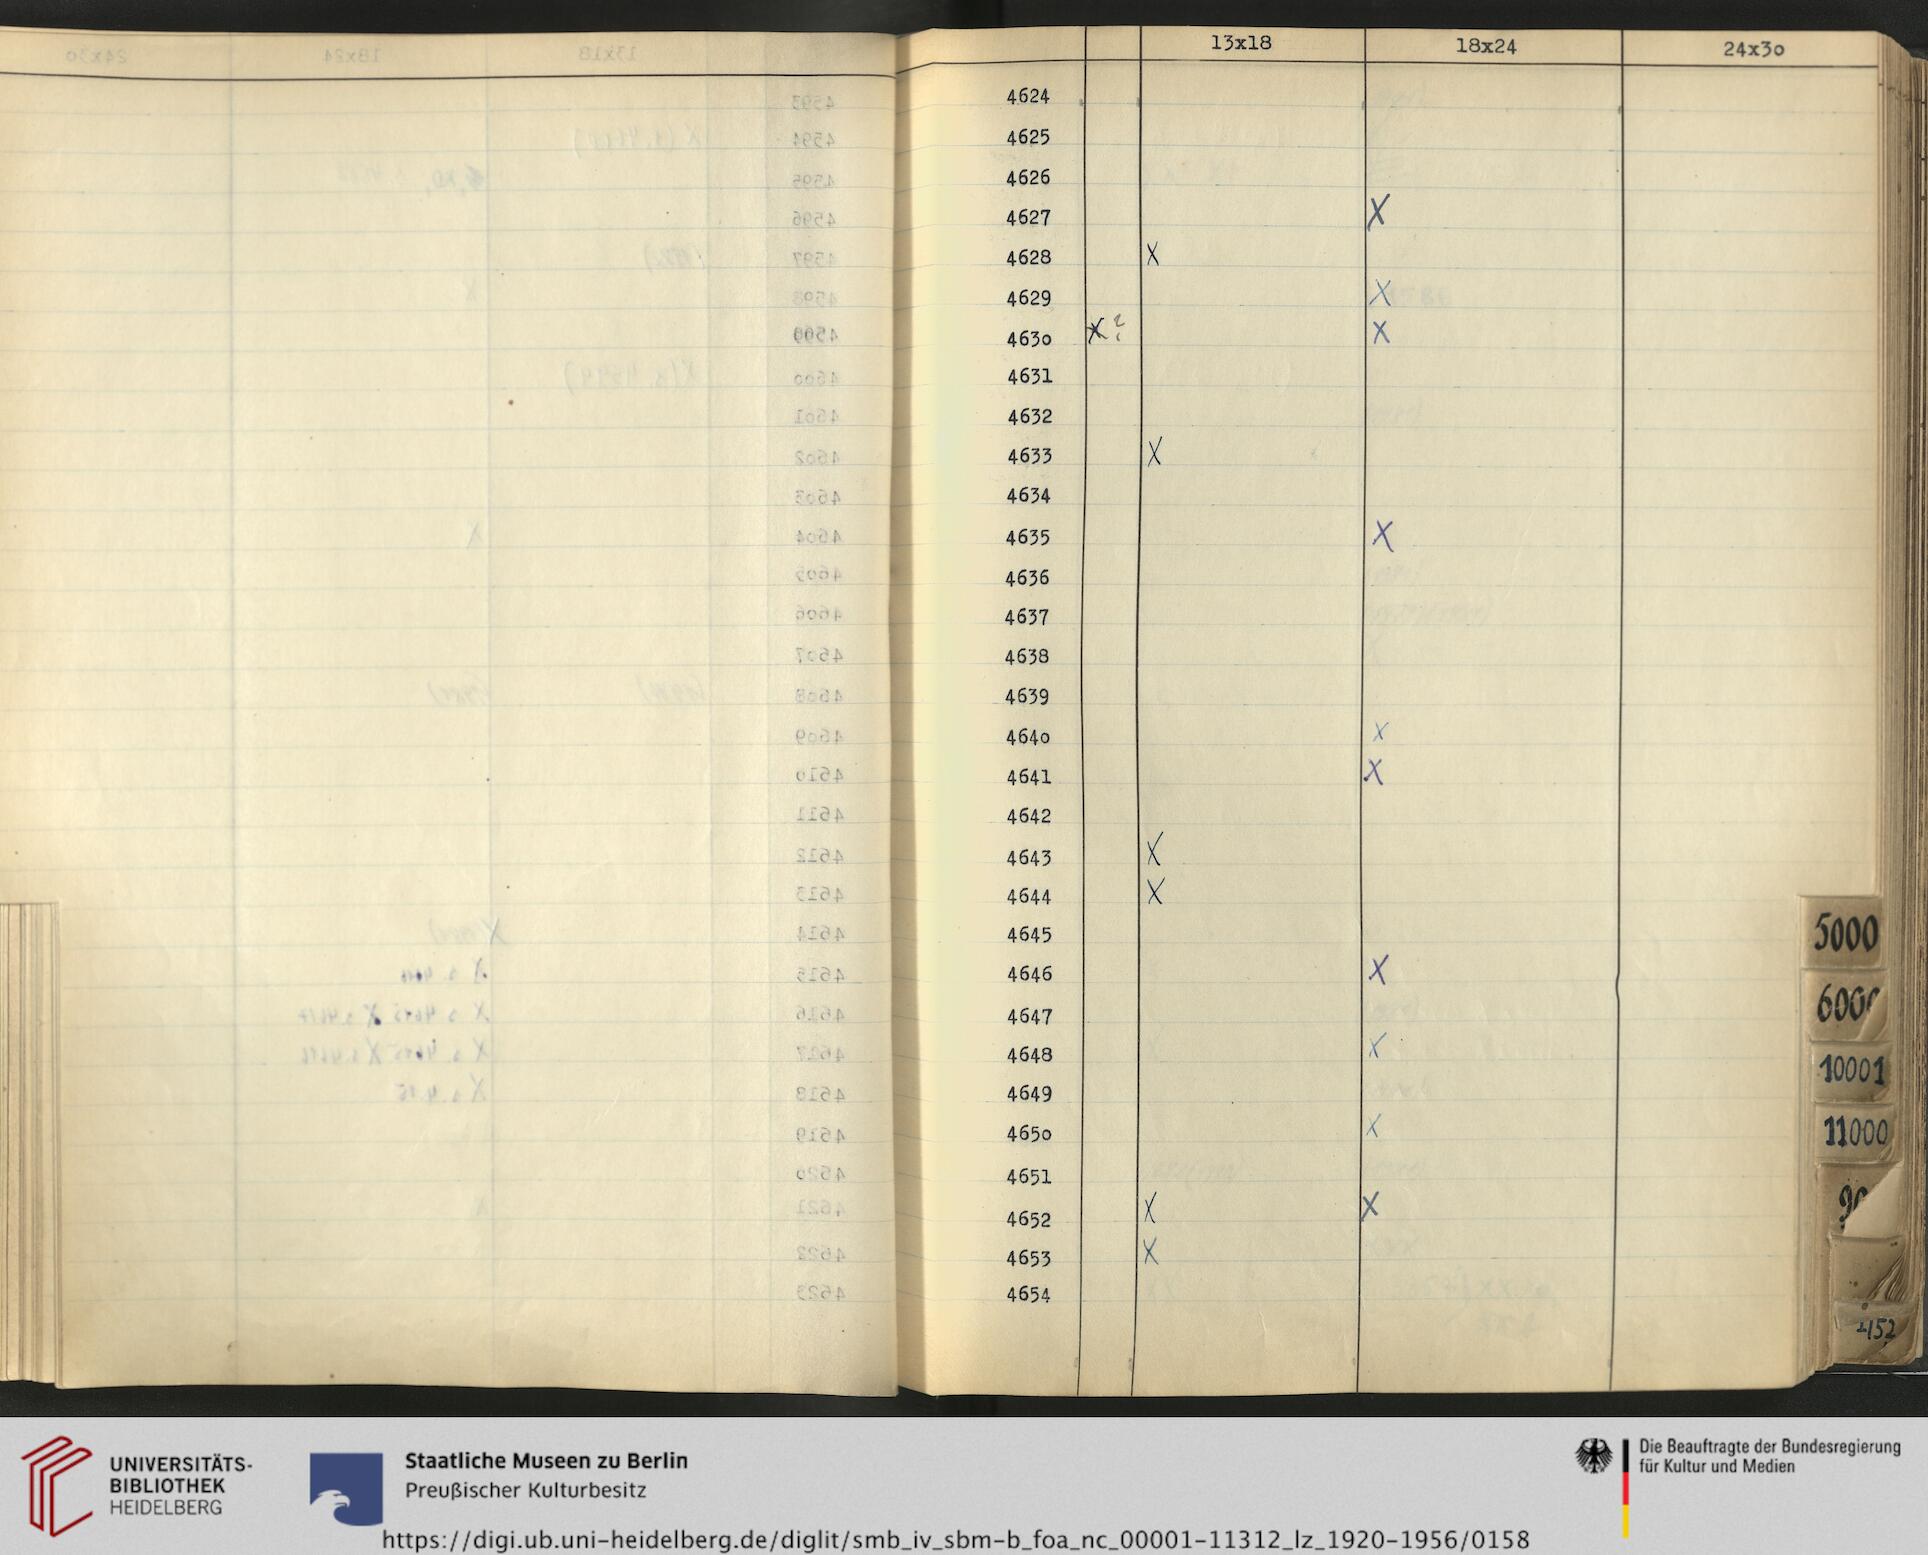 13x18 18x24 24x30
4624
4625
4626
4627 X
4628 X
4629 X
4630 X ? X
4631
4632
4633 X
4634
4635 X
4636
4637
4638
4639
4640 X
4641 X
4642
4643 X
4644 X
4645
4646 X
4647
4648 X
4649
4650 X
4651
4652 X X
4653 X
4654
5000
6000
10001
11000
UNIVERSITÄTS-
BIBLIOTHEK
HEIDELBERG
Staatliche Museen zu Berlin
Preußischer Kulturbesitz
Die Beauftragte der Bundesregierung
für Kultur und Medien
https://digi.ub.uni-heidelberg.de/diglit/smb_iv_sbm-b_foa_nc_00001-11312_lz_1920-1956/0158